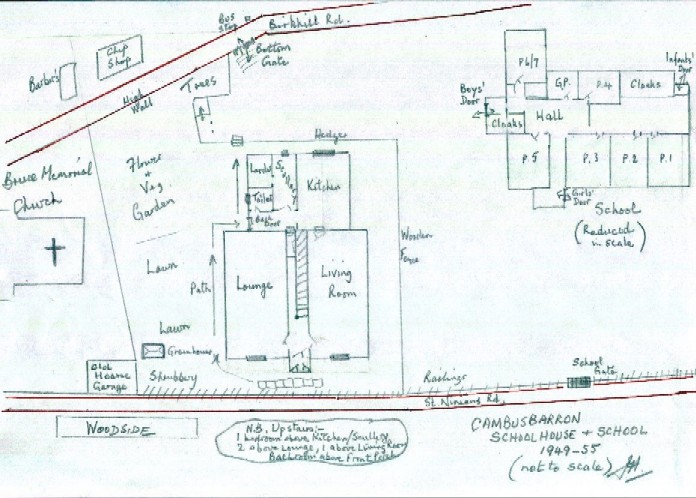 Bus
Stop
Birkhill Rd.
Chip
Shop
Barber's
Bottom
Gate
High
Wall
Trees
Hedges
Bruce Memorial
Church
Flower
+
Veg
Garden
Lawn
Lawn
Path
Larder
Scullery
Toilet
Back
Door
Kitchen
Lounge
Living
Room
Wooden
Fence
Greenhouse
Shrubbery
Old
Hearse
Garage
Railings
School
Gate
St. Ninians Rd.
WOODSIDE
N.B. Upstairs:-
1 bedroom above Kitchen/Scullery
2 above Lounge, 1 above Living Room
Bathroom above Front Porch
P.6/7
G.P.
P.4
Cloaks
Infants'
Door
Boys'
Door
Cloaks
Hall
P.5
P.3
P.2
P.1
Girls'
Door
School
(Reduced
in scale)
CAMBUSBARRON
SCHOOLHOUSE + SCHOOL
1949-55
(not to scale)